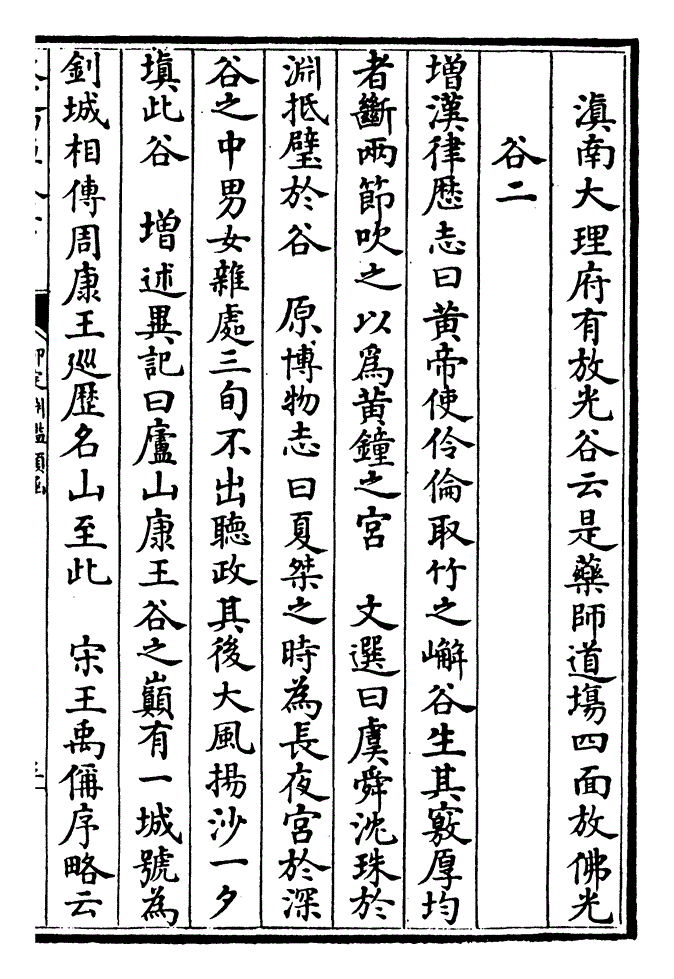 滇南大理府有放光谷云是藥師道塲四面放佛光
谷二
增漢律歴志曰黄帝使伶倫取竹之嶰谷生其竅厚均
者斷兩節吹之以爲黄鐘之宮　文選曰虞舜沈珠於
淵抵璧於谷　原博物志曰夏桀之時為長夜宮於深
谷之中男女雜處三旬不出聽政其後大風揚沙一夕
填此谷　增述異記曰廬山康王谷之巔有一城號為
釗城相傳周康王廵歴名山至此　宋王禹偁序略云
御定淵鑑類函